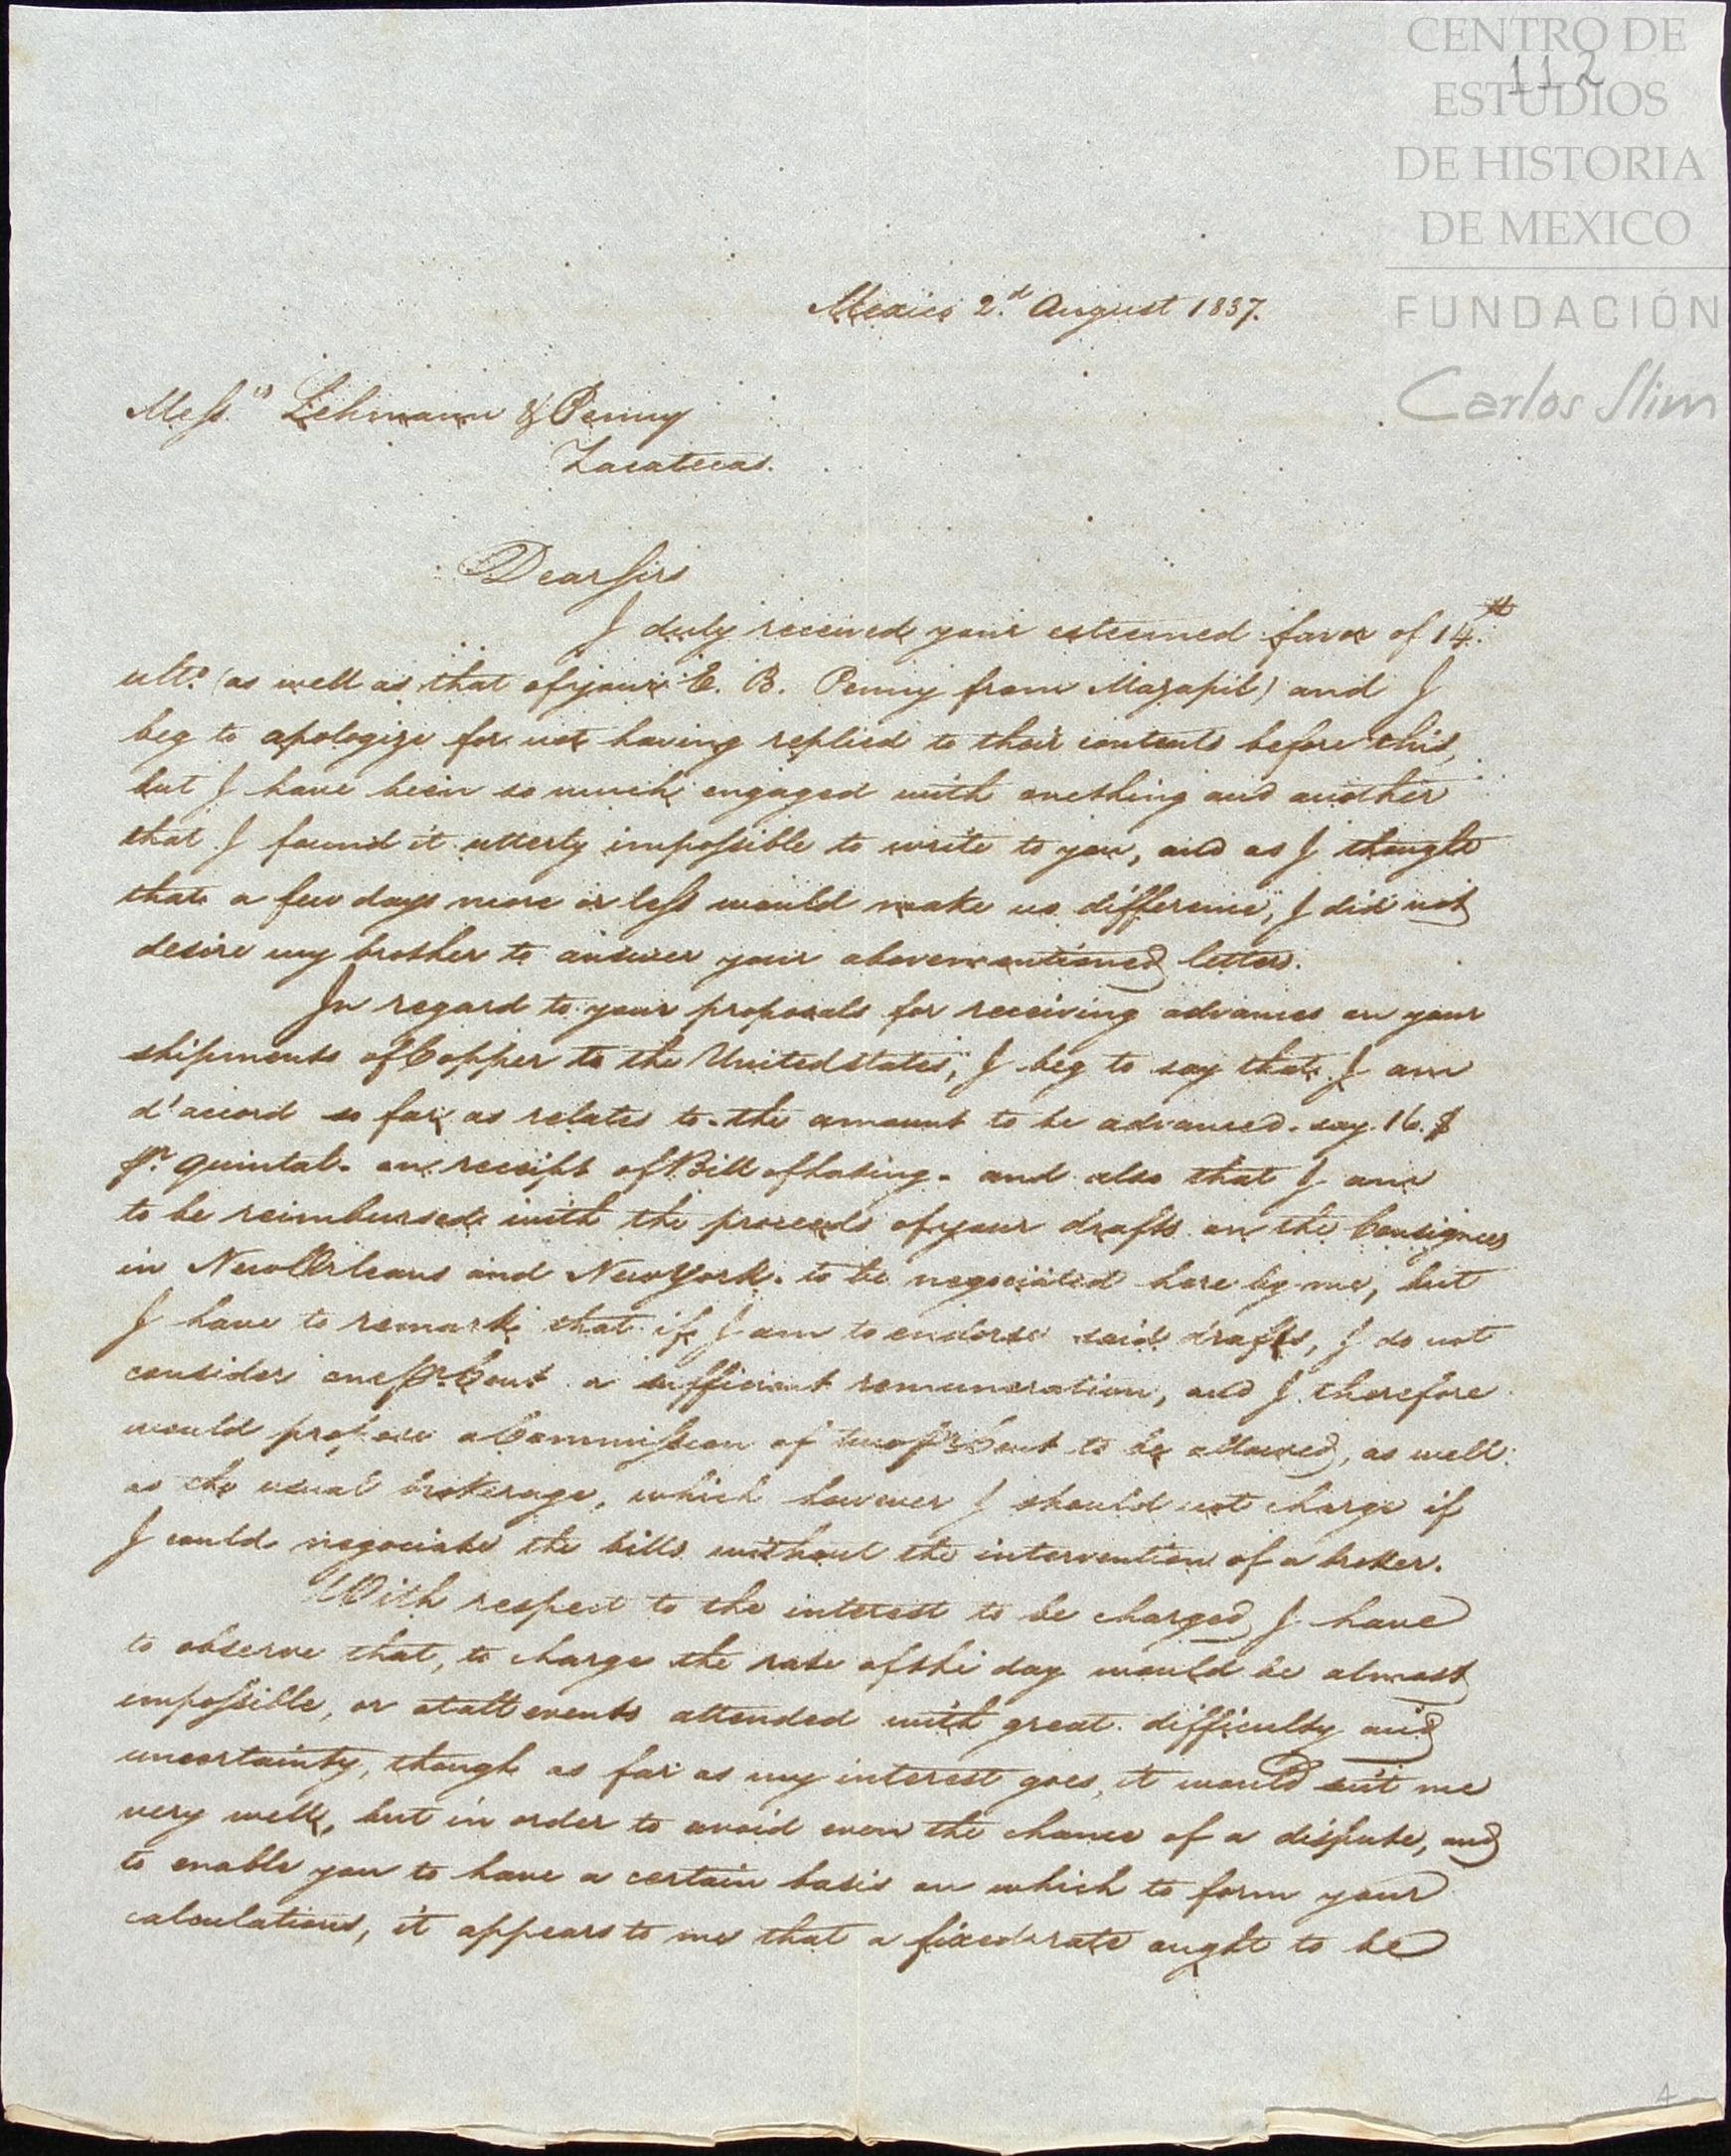 CENTRO DE
112
ESTUDIOS
DE HISTORIA
DE MEXICO
FUNDACIÓN
Carlos Slim
Mexico 2.d August 1837.
Mess.rs Lehmann & Penny
Zacatecas.
Dear Sirs
I duly received your esteemed favor of 14.th
ult.o (as well as that of your E. B. Penny from Mazapil) and I
beg to apologize for not having replied to their contents before this,
but I have been so much engaged with one thing and another
that I found it utterly impossible to write to you, and as I thought
that a few days more or less would make no difference, I did not
desire my brother to answer your abovementioned letters.
In regard to your proposals for receiving advances on your
shipments of Copper to the United States, I beg to say that I am
d'accord so far as relates to the amount to be advanced - say 16.$
pr. quintal - on receipt of Bill of Lading - and also that I am
to be reimbursed with the proceeds of your drafts on the Consignees
in New Orleans and New York - to be negociated here by me, but
I have to remark that if I am to endorse said drafts, I do not
consider one pr. Cent a sufficient remuneration, and I therefore
would propose a Commission of two pr. Cent to be allowed, as well
as the usual brokerage, which however I should not charge if
I could negociate the bills without the intervention of a broker.
With respect to the interest to be charged I have
to observe that, to charge the rate of the day would be almost
impossible, or at all events attended with great difficulty and
uncertainty, though as far as my interest goes, it would suit me
very well, but in order to avoid even the chance of a dispute, and
to enable you to have a certain basis on which to form your
calculations, it appears to me that a fixed rate ought to be
4